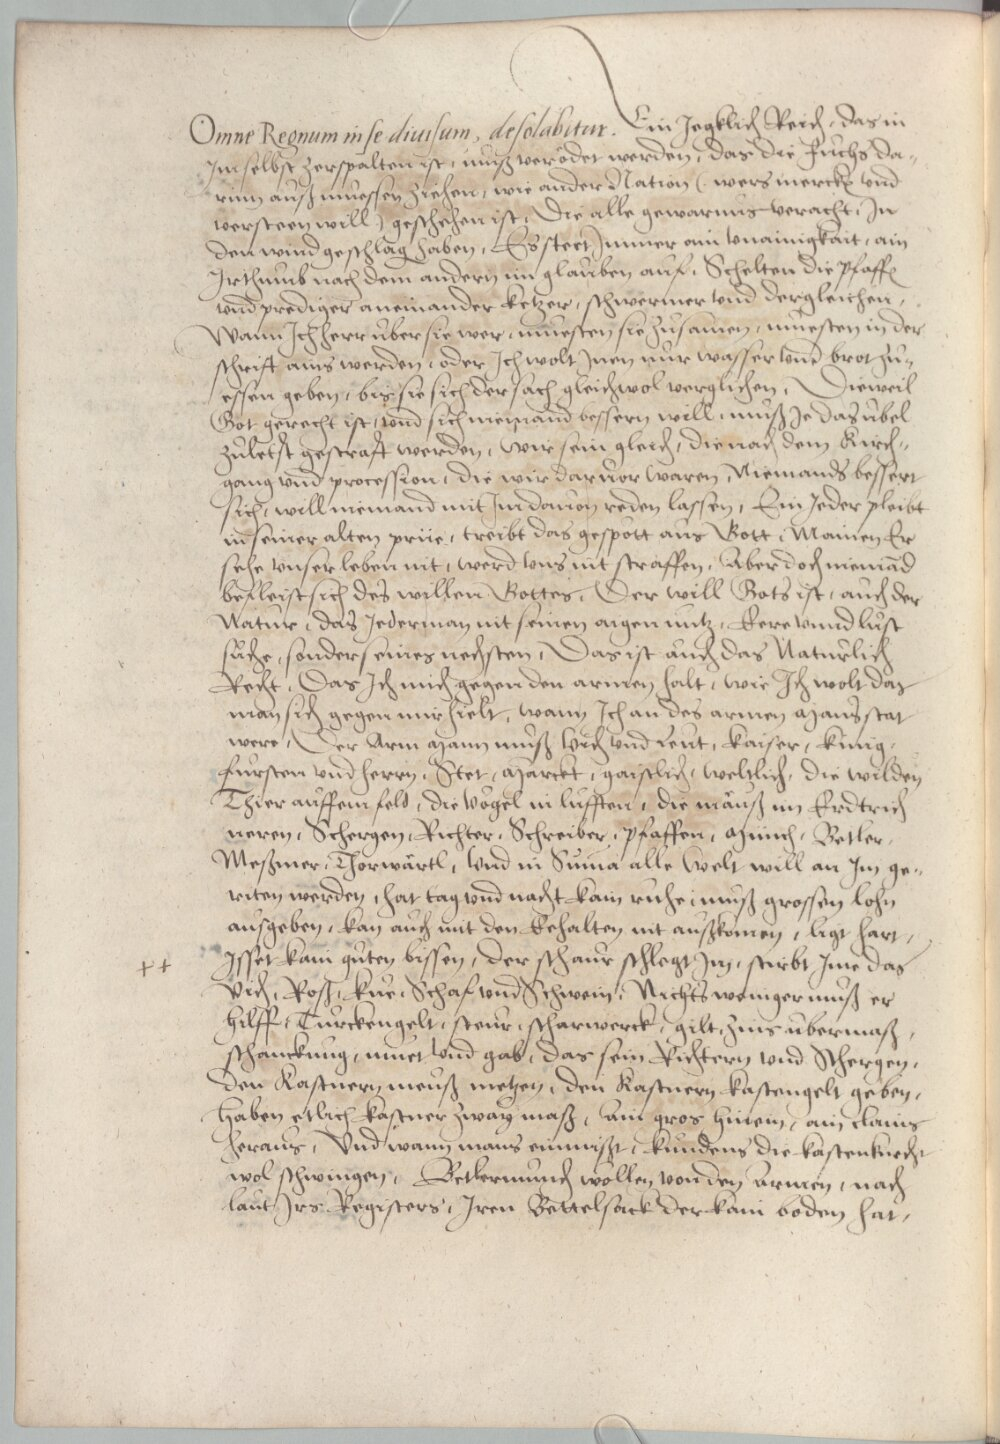 Omne Regnum in se diuisum, desolabitur. Ein Jegklich Reich, das in
Im selbst zerspalten ist, muß verödet werden, das die Füchs da-
rinn auß muessen ziehen, wie ander Nation (wers merckh vnd
versteen will) geschehen ist, Die alle gewarnus veracht, In
den wind geschlag haben, Es steet Immer ain vnainigkait, ain
Irthumb nach dem andern im glauben auf, Schelten die Pfaffen
vnd prediger aneinander ketzer, schwermer vnd dergleichen,
Wann Ich herr über sie wer, muesten sie zusamen, muesten in der
schrift ains werden, oder Ich wolt Inen nur wasser vnd brot zu-
essen geben, bis sie sich der sach gleichwol verglichen, Dieweil
Got gerecht ist, vnd sich niemand bessern will, muß Je das übel
zuletst gestraft werden, wir sein gleich, die nach dem kirch-
gang vnd procession, die wir daruor waren, Niemands bessert
sich, will niemand mit Im dauon reden lassen, Ein Jeder pleibt
in seiner alten, treibt das gespött aus Gott, Mainen Er
sehe vnser leben nit, werd vns nit straffen, Aber doch niemād
befleist sich des willen Gottes, Der will Gots ist, auch der
Natur, das Jederman nit seinen aigen nutz, Eere vnnd lust
suche, sonder seines nechsten, Das ist auch das Natürlich
Recht, Das Ich mich gegen den armen halt, wie Ich wolt das
man sich gegen mir hielt, wann Ich an des armen Mans stat
were, Der Arm Mann muß Vich vnd Leut, kaiser, künig,
fürsten vnd herrn, Stet, Märckt, gaistlich, weltlich, die wilden
Thier auff em feld, die Vögel in lufften, die mäuß im Erdtrich
neren, Schergen, Richter, Schreiber, Pfaffen, Münch, Betler,
Meßmer, Thorwärtl, Vnd in Suma alle Welt will an Im ge-
riten werden, hat tag vnd nacht kain ruhe, muß grossen lohn
ausgeben, kan auch mit den Eehalten nit außkomen, ligt hart,
++ Isset kain guten bissen, der schaur schlegt Im, stirbt Ime das
Vich, Roß, kue, Schaf vnd Schwein, Nichts weniger muß er
hilff, Türckengelt, steur, scharwerck, gilt, zins übermaß,
schanckung, muet vnd gab, das sein Richtern vnd Schergen,
den Kastnern meuß metzen, den Kastnern kastengelt geben,
haben etlich kastner zway maß, ain gros hinein, ain clains
heraus, Vnd wann mans einmißt, kundens die kastenknecht
wol schwingen, Betlermunch wöllen von den Armen, nach
laut Irs Registers, Iren Bettelsack der kain boden hat,